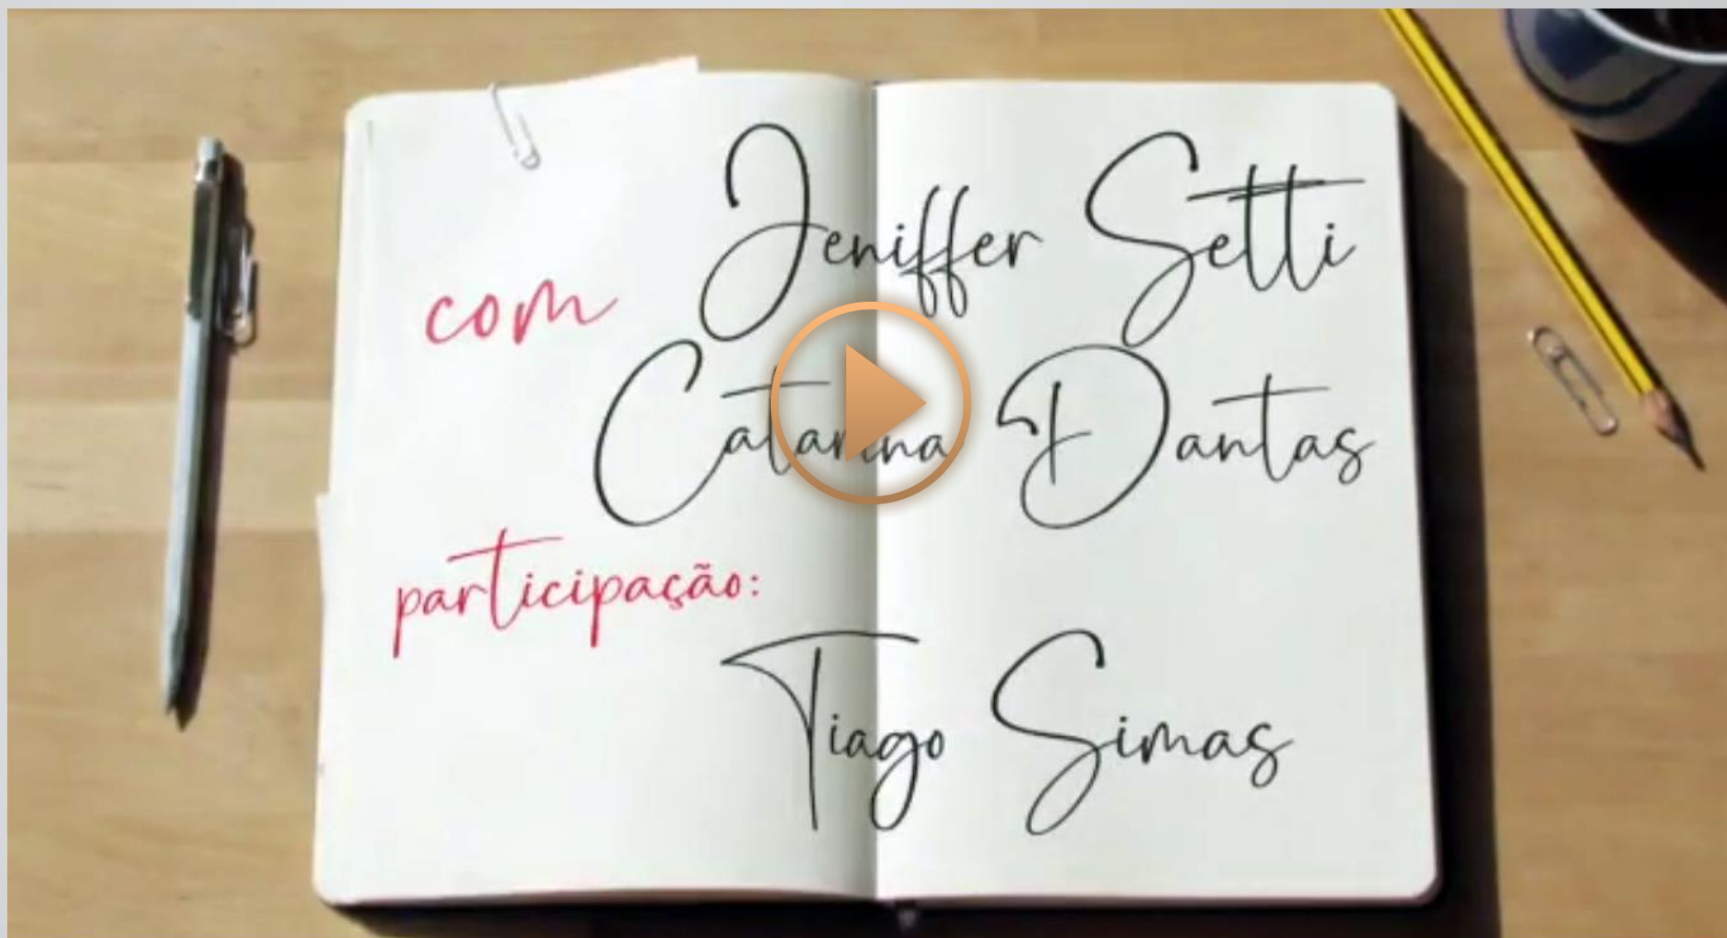 com Jeniffer Setti
Catarina Dantas
participação:
Tiago Simas